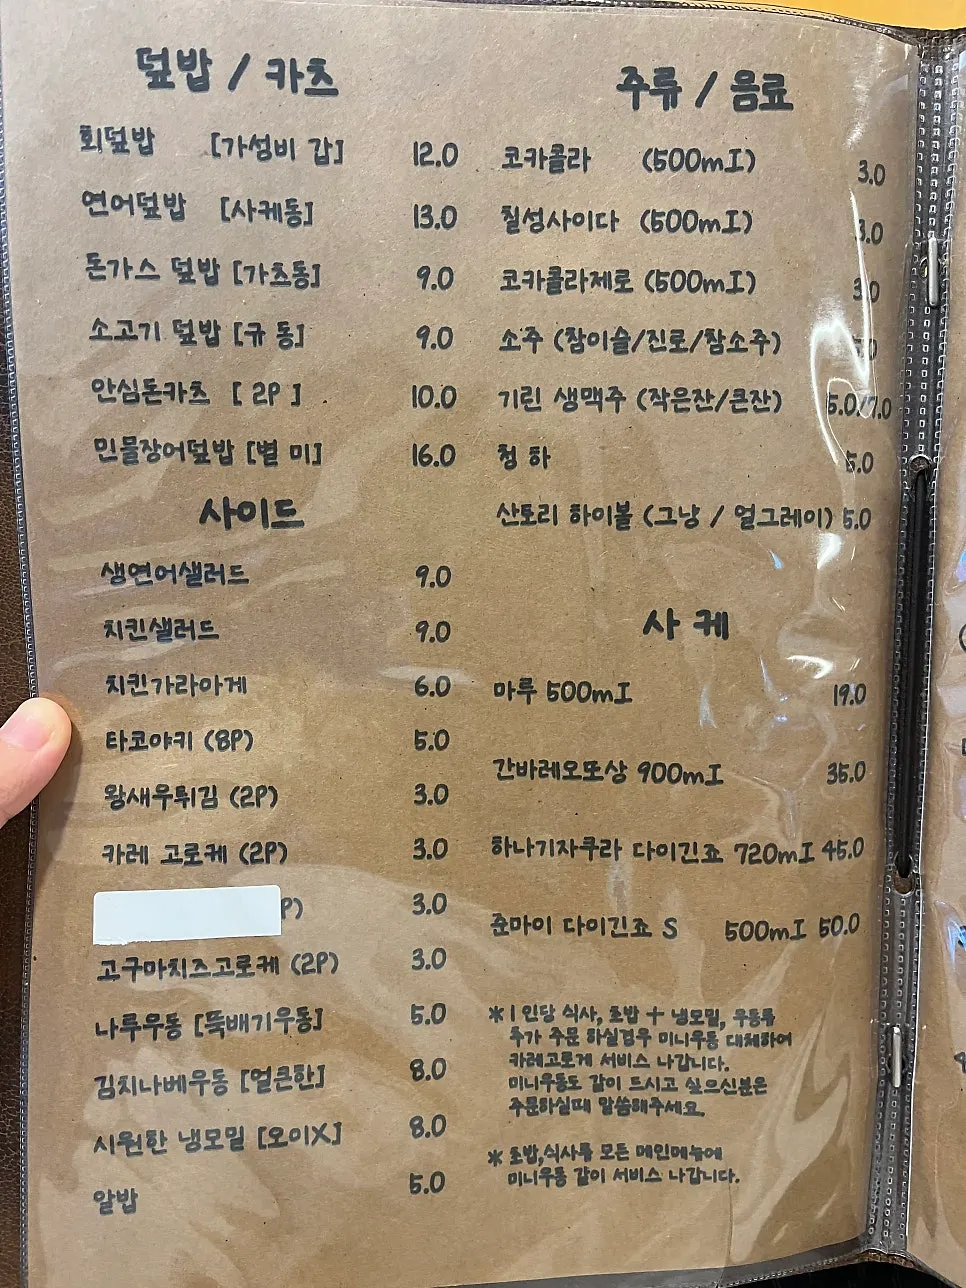 덮밥 / 카츠
회덮밥 [가성비 갑] 12.0
연어덮밥 [사케동] 13.0
돈가스 덮밥 [가츠동] 9.0
소고기 덮밥 [규 동] 9.0
안심돈카츠 [ 2P ] 10.0
민물장어덮밥 [별 미] 16.0
사이드
생연어샐러드 9.0
치킨샐러드 9.0
치킨가라아게 6.0
타코야키 (8P) 5.0
왕새우튀김 (2P) 3.0
카레 고로케 (2P) 3.0
P) 3.0
고구마치즈고로케 (2P) 3.0
나루우동 [뚝배기우동] 5.0
김치나베우동 [얼큰한] 8.0
시원한 냉모밀 [오이X] 8.0
알밥 5.0
주류 / 음료
코카콜라 (500mI) 3.0
칠성사이다 (500mI) 3.0
코카콜라제로 (500mI) 3.0
소주 (참이슬/진로/참소주)
기린 생맥주 (작은잔/큰잔) 5.0/7.0
청 하 5.0
산토리 하이볼 (그냥 / 얼그레이) 5.0
사 케
마루 500mI 19.0
간바레오또상 900mI 35.0
하나기자쿠라 다이긴죠 720mI 45.0
준마이 다이긴죠 S 500mI 50.0
※ 1 인당 식사, 초밥 + 냉모밀, 우동류
추가 주문 하실경우 미니우동 대체하여
카레고로케 서비스 나갑니다.
미니우동도 같이 드시고 싶으신분은
주문하실때 말씀해주세요.
※ 초밥,식사류 모든 메인메뉴에
미니우동 같이 서비스 나갑니다.